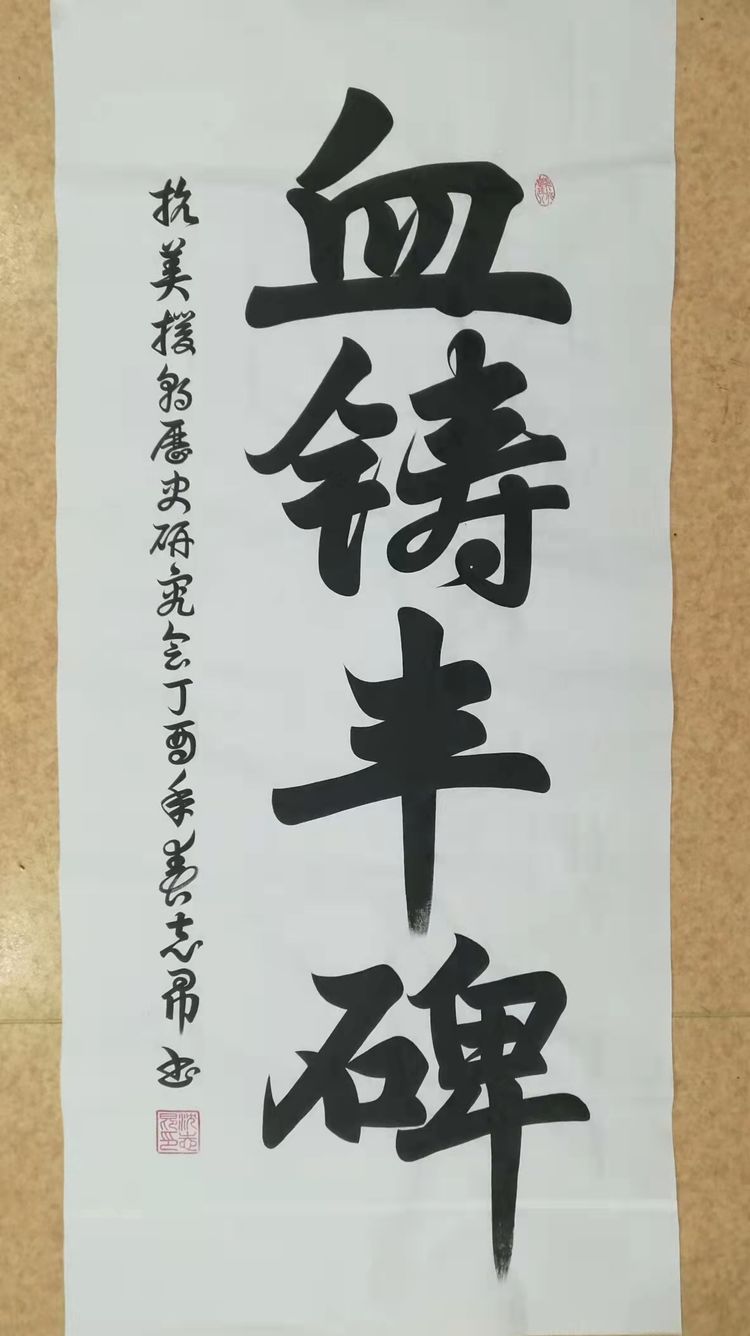 血铸丰碑
抗美援朝歷史研究会丁酉年春志昂书